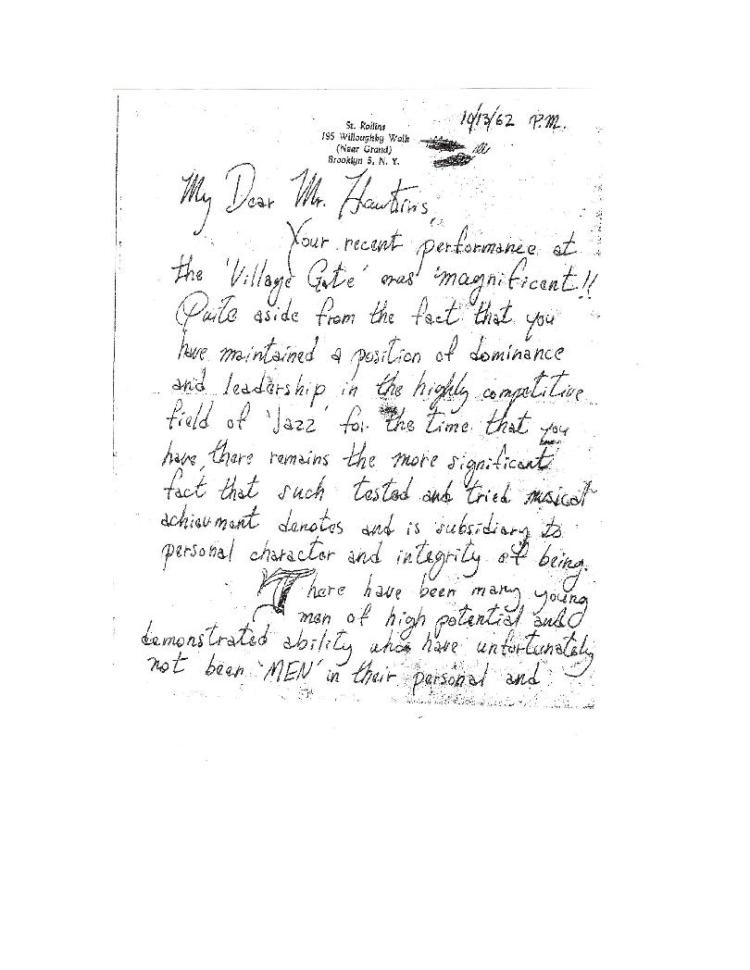 10/13/62 P.M.
St. Rollins
195 Willoughby Walk
(Near Grand)
Brooklyn 5, N. Y.
My Dear Mr. Hawkins,
Your recent performance at
the 'Village Gate' was magnificent!!
Quite aside from the fact that you
have maintained a position of dominance
and leadership in the highly competitive
field of 'Jazz' for the time that you
have, there remains the more significant
fact that such tested and tried musical
achievment denotes and is subsidiary to
personal character and integrity of being.
There have been many young
men of high potential and
demonstrated ability who have unfortunately
not been 'MEN' in their personal and